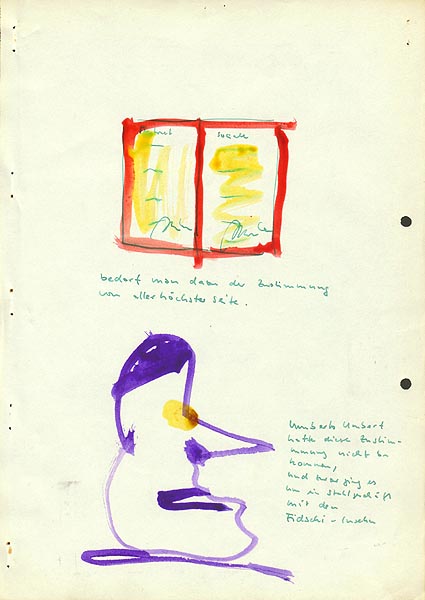 bedarf man dazu der Zustimmung
von allerhöchster Seite.
Umberto Umbert
hatte diese Zustim-
mmung nicht be
kommen,
und zwar ging es
um ein Stahlgeschäft
mit den
Fidschi-Inseln